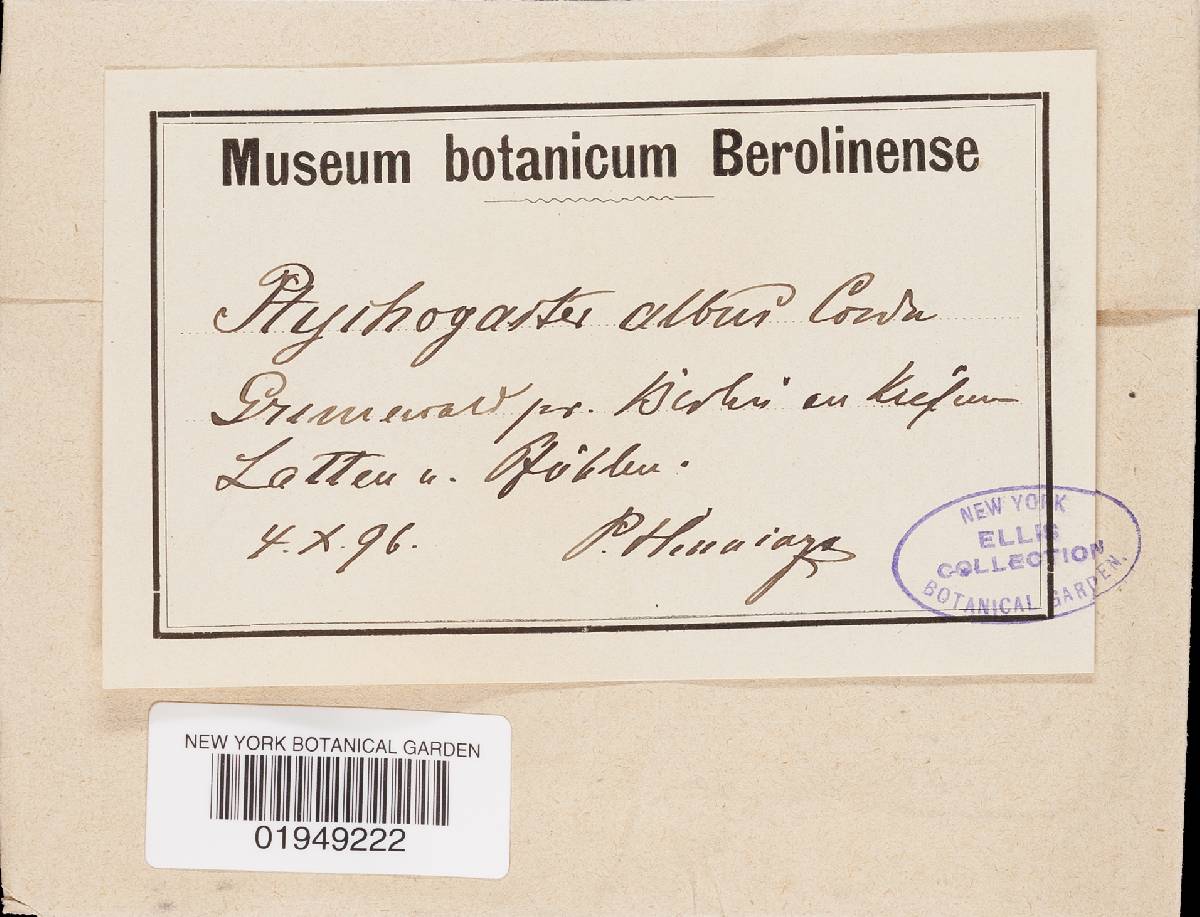 Museum botanicum Berolinense
Ptychogaster albus Corda
Grunewald pr. Berlin an Kiefern
Latten u. Pfählen.
4. X. 96.
P. Hennings
NEW YORK
ELLIS
COLLECTION
BOTANICAL GARDEN.
NEW YORK BOTANICAL GARDEN
01949222